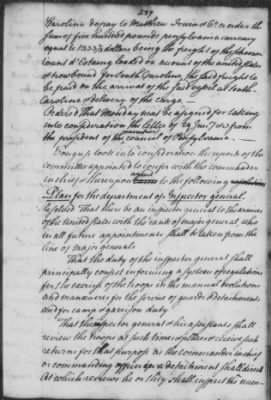 277
Carolina do pay to Matthew Irwin & Co or order the
sum of five hundred pounds pensylvania currency
equal to 1333⅓ dollars being the freight of the schooner
Count d'Estaing loaded on account of the united states
& now bound for South Carolina, the said freight to
be paid on the arrival of the said vessel at South
Carolina & delivery of the cargo
Ordered that Monday next be assigned for taking
into consideration the letter of 29 Jany
from the president of the council of Pensylvania.
Congress took into consideration the report of the
committee appointed to confer with the commander
in chief & thereupon agreed to the following
Plan for the department of Inspector general.
Resolved That there be an inspector general to the army
of the United States with the rank of major general who
in all future appointments shall be taken from the
line of major generals
That the duty of the inspector general shall
principally consist in forming a system of regulations
for the exercise of the troops in the manual evolutions
and manœuvres for the service of guards & detachments
and for camp & garrison duty
That the inspector general & his assistants shall
review the troops at such times & places & receive such
returns for that purpose as the commander in chief
or commanding officer in a detachment shall direct
At which reviews he or they shall inspect the num-